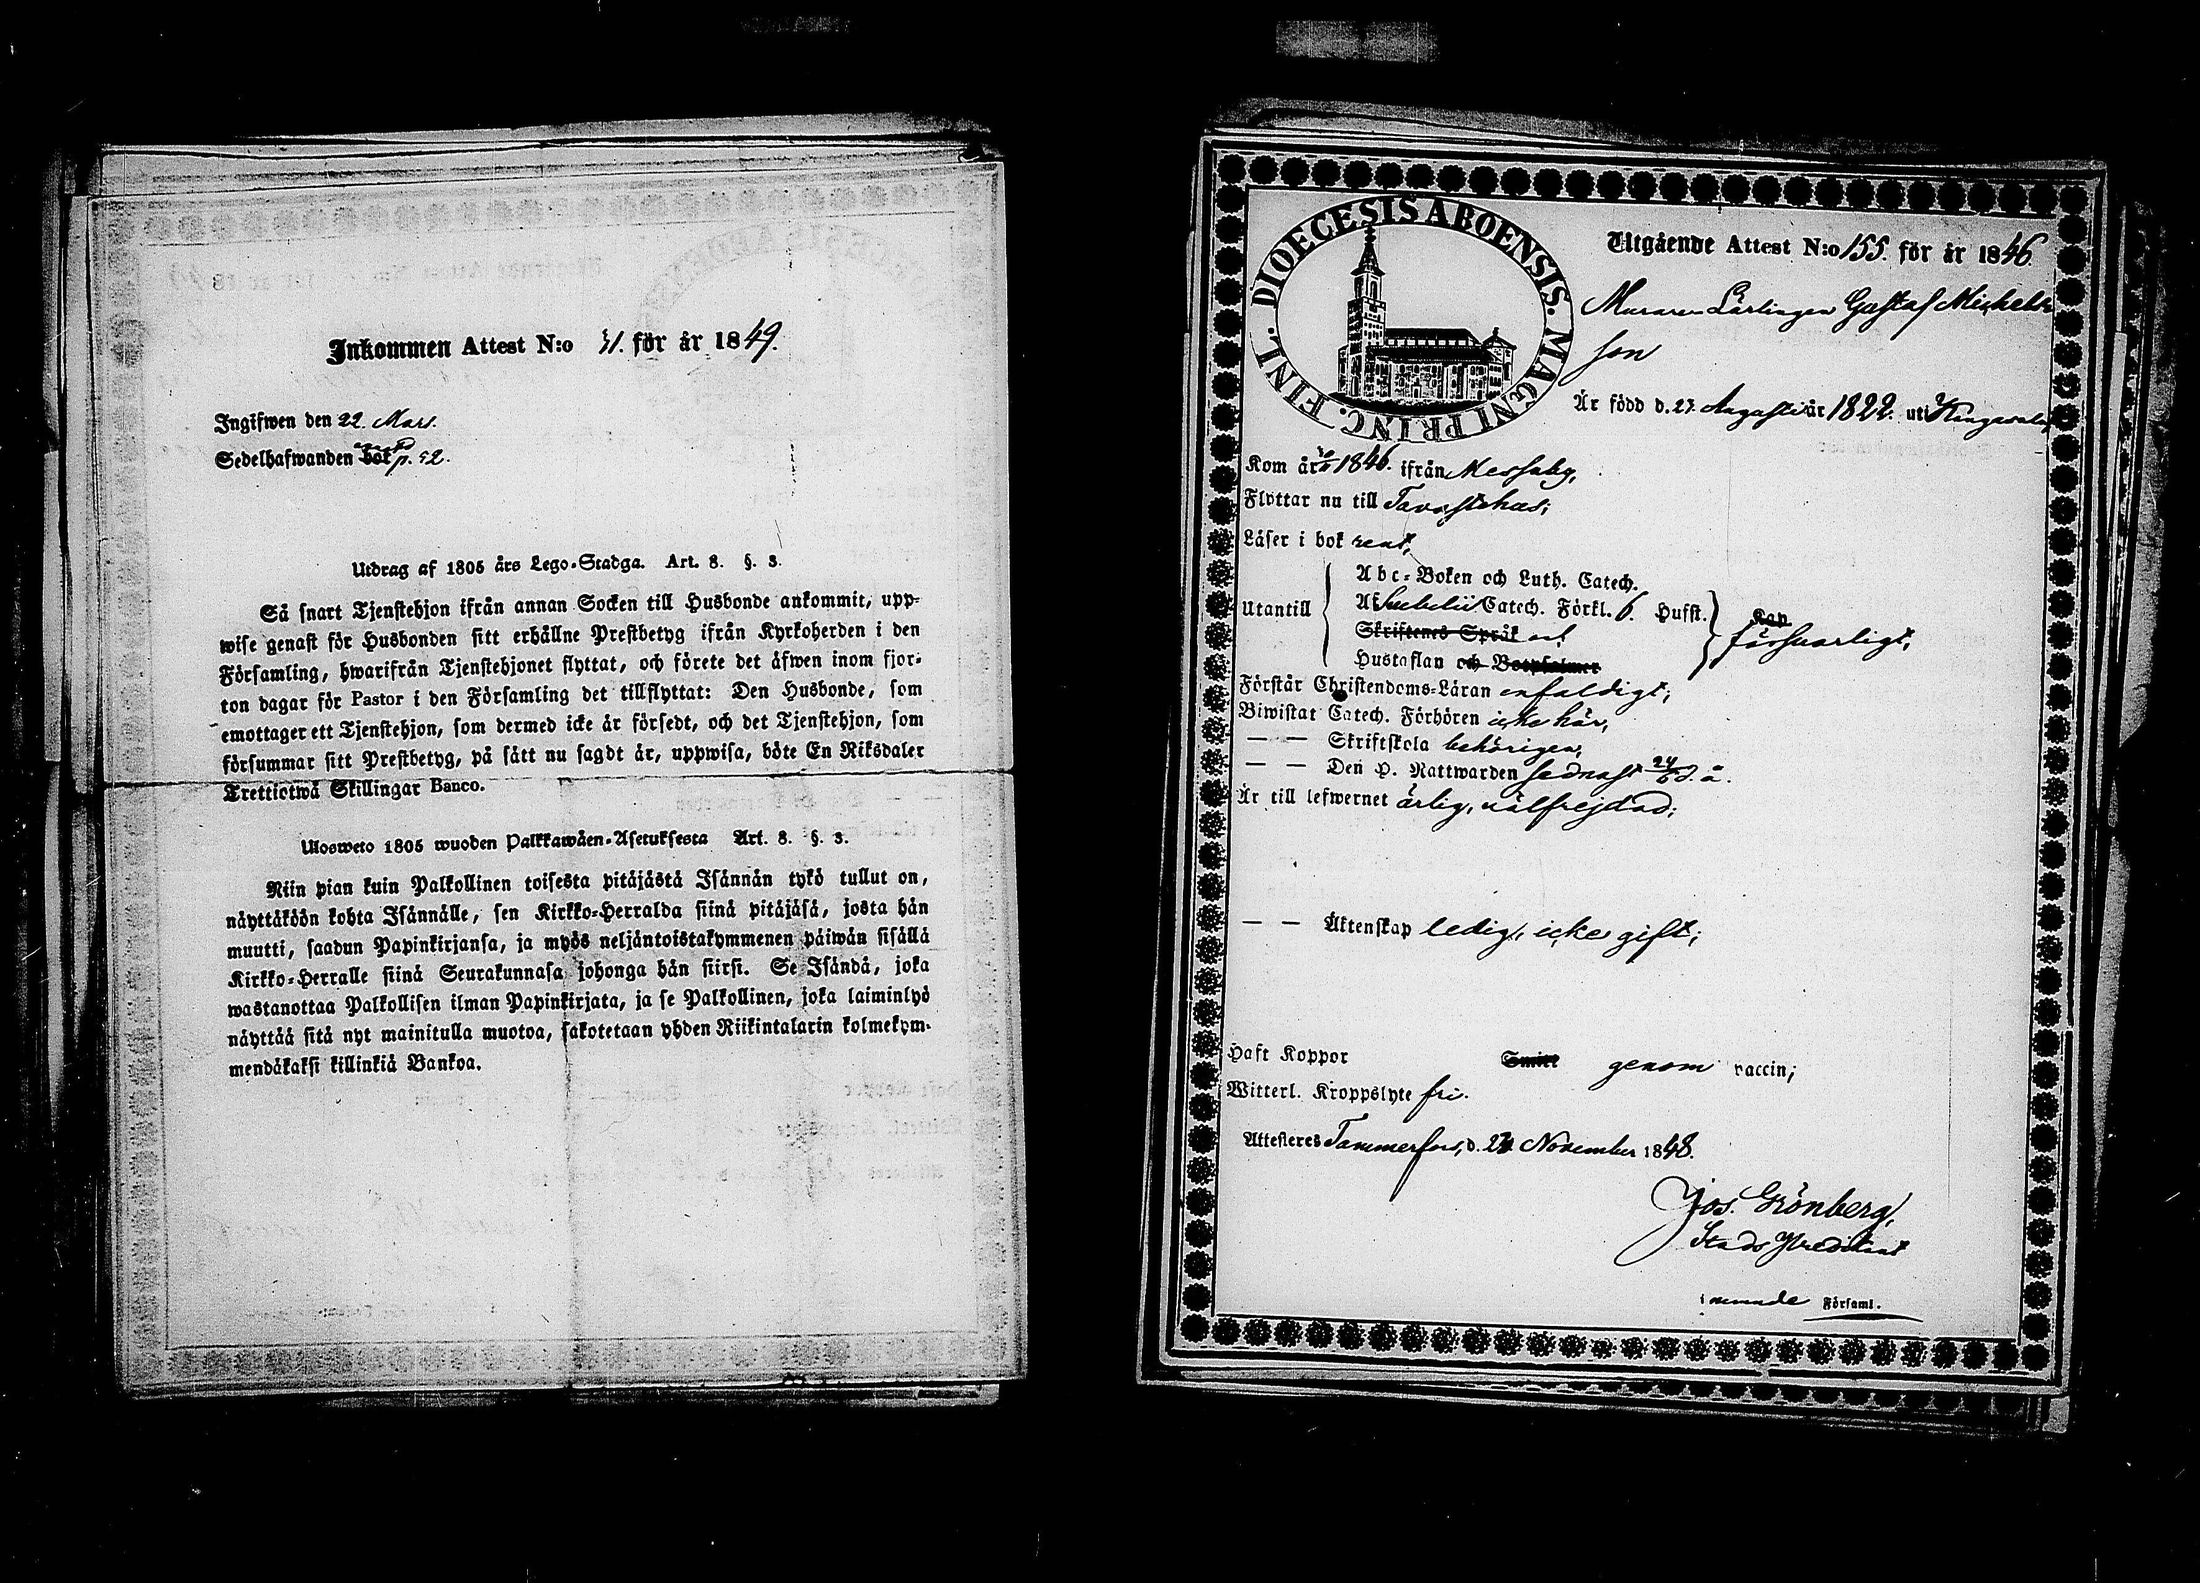 Inkommen Attest N:o 31. för år 1849.
Ingifwen den 22 Mars.
Sedelhafwanden p. 52.
Utdrag af 1805 års Lego-Stadga. Art. 8. §. 3.
Så snart Tjenstehjon ifrån annan Socken till Husbonde ankommit, upp-
wise genast för Husbonden sitt erhållne Prestbetyg ifrån Kyrkoherden i den
Församling, hwarifrån Tjenstehjonet flyttat, och förete det äfwen inom fjor-
ton dagar för Pastor i den Församling det tillflyttat: Den Husbonde, som
emottager ett Tjenstehjon, som dermed icke är försedt, och det Tjenstehjon, som
försummar sitt Prestbetyg, på sätt nu sagdt är, uppwisa, böte En Riksdaler
Trettiotwå Skillingar Banco.
Ulosweto 1805 wuoden Palkkawäen-Asetuksesta Art. 8. §. 3.
Niin pian kuin Palkollinen toisesta pitäjästä Isännän tykö tullut on,
näyttäköön kohta Isännälle, sen Kirkko-Herralda siinä pitäjäsä, josta hän
muutti, saadun Papinkirjansa, ja myös neljäntoistakymmenen päiwän sisällä
Kirkko-Herralle siinä Seurakunnasa johonga hän siirsi. Se Isändä, joka
wastanottaa Palkollisen ilman Papinkirjata, ja se Palkollinen, joka laiminlyö
näyttää sitä nyt mainitulla muotoa, sakotetaan yhden Riikintalarin kolmekym-
mendäkaksi killinkiä Bankoa.
DIOECESIS ABOENSIS. MAGNI PRINC. FINL.
Utgående Attest N:o 155. för år 1846.
Muraren Lärlingen Gustaf Michels-
son
Är född d. 27. Augusti år 1822. uti Kangasala,
Kom år 1846. ifrån Messuby,
Flyttar nu till Tavastehus;
Läser i bok rent,
Abc-Boken och Luth. Catech.
Utantill Svebelii Catech. Förkl. 6. Hufst.
Skriftenes Språk och försvarligt,
Hustaflan och Botpsalmer
Förstår Christendoms-Läran enfaldigt;
Biwistat Catech. Förhören icke här,
— — Skriftskola behörigen,
— — Den H. Nattwarden sednast 24/6 d. å.
Är till lefwernet ärlig, välfrejdad;
— — Äktenskap ledig, icke gift;
Haft Koppor genom vaccin;
Witterl. Kroppslyte fri.
Attesteres Tammerfors, d. November 1848.
Jos. Grönberg,
Stads Predikant
Församl.